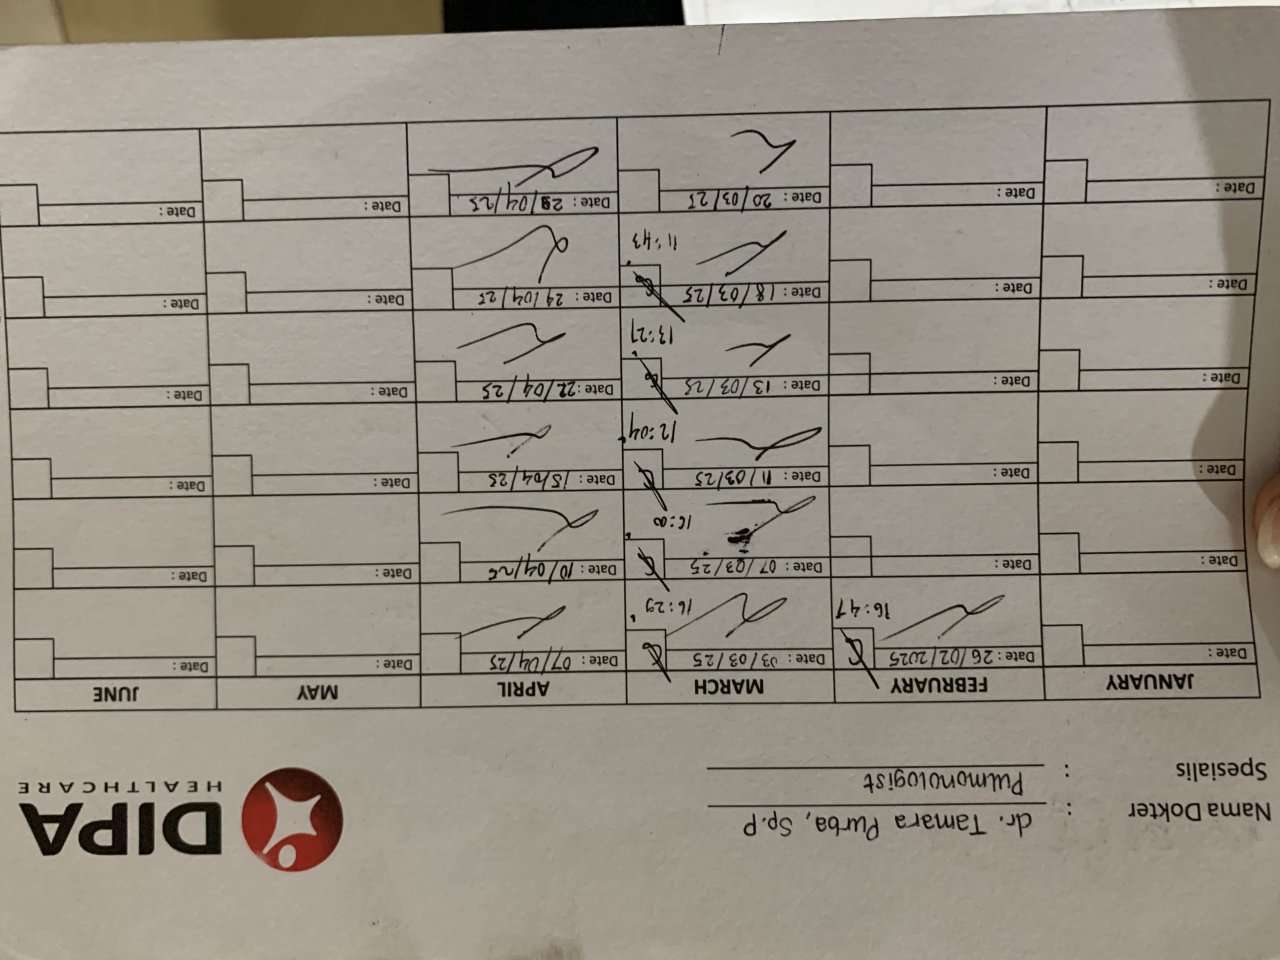 Nama Dokter : dr. Tamara Purba, Sp.P
Spesialis : Pulmonologist
DIPA
HEALTHCARE
JANUARY FEBRUARY MARCH APRIL MAY JUNE
Date : Date : 26/02/2025 Date : 03/03/25 Date : 07/04/25 Date : Date :
16:47 16:29
Date : Date : Date : 07/03/25 Date : 10/04/25 Date : Date :
Date : Date : Date : 11/03/25 Date : 15/04/25 Date : Date :
12:04
Date : Date : Date : 13/03/25 Date : 22/04/25 Date : Date :
13:27
Date : Date : Date : 18/03/25 Date : 24/04/25 Date : Date :
11:43
Date : Date : Date : 20/03/25 Date : 29/04/25 Date : Date :